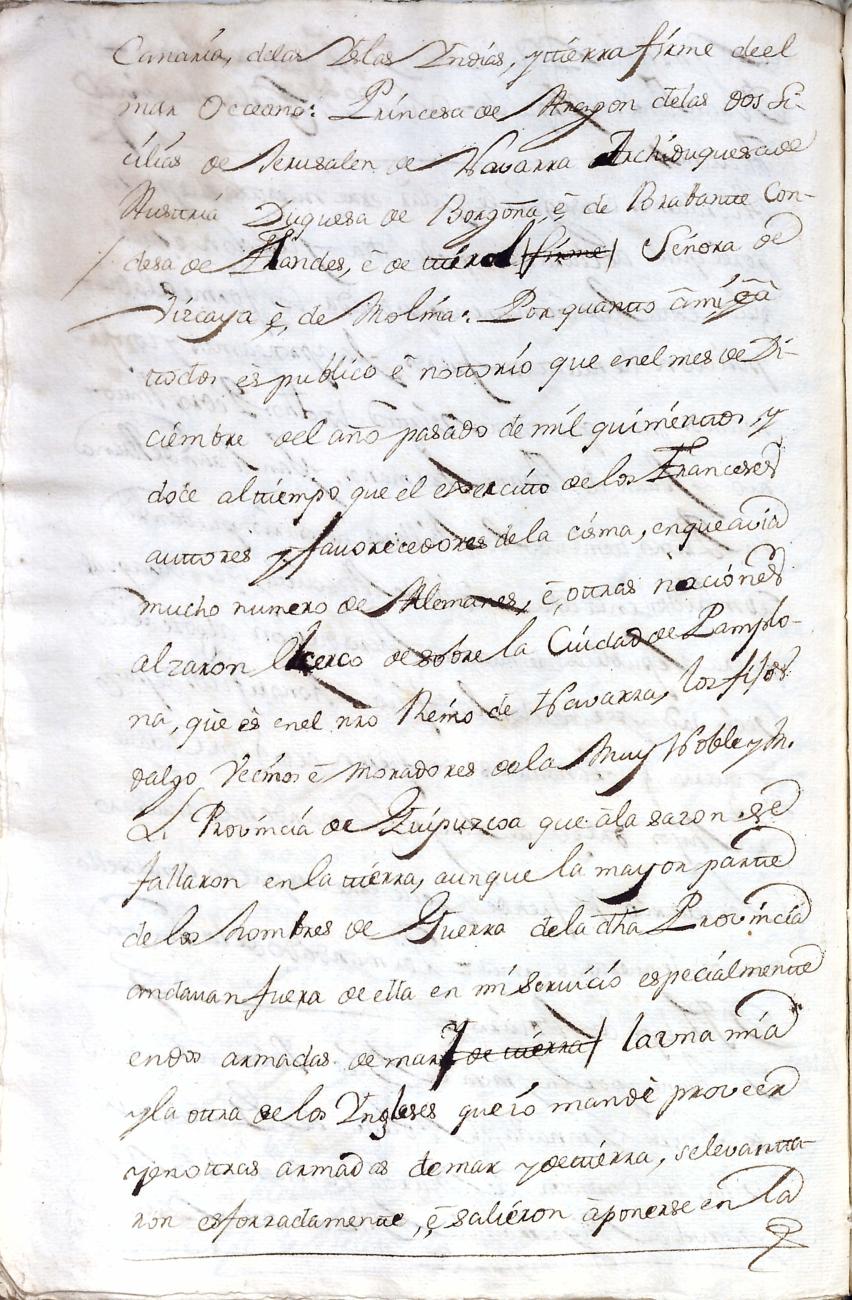 Canaria, delas Yslas Yndias, y tierra firme de el
mar Occeano: Princesa de Aragon delas dos Si-
cilias de Jerusalen de Navarra Archiduquesa de
Austria Duquesa de Borgoña, ê de Brabante Con-
desa de Flandes, ê de tirol firme Señora de
Vizcaya ê, de Molina: Por quantto â mi, ê â
ttodos es publico ê nottorio que enel mes de Di-
ciembre del año pasado de mil quinienttos, y
doce al tiempo que el exercitto de los Franceses
auttores y favorecedores de la cisma, en que avia
mucho numero de Alemanes, ê, ottras naciones
alzaron el cerco de sobre la Ciudad de Pamplo-
na, que es enel nro Reino de Navarra, los fijos
dalgo Vecinos ê Moradores de la Muy Noble y M.
L. Provincia de Guipuzcoa que â la sazon se
fallaron en la tierra, aunque la mayor partte
de los hombres de Guerra de la dha Provincia
andavan fuera de ella en mi servicio especialmentte
en dos armadas de mar y de tierra la una mia
y la ottra de los Yngleses que io mandè proveer
y en ottras armadas de mar y de tierra, se levantta-
ron esforzadamente, ê salieron âponerse en la